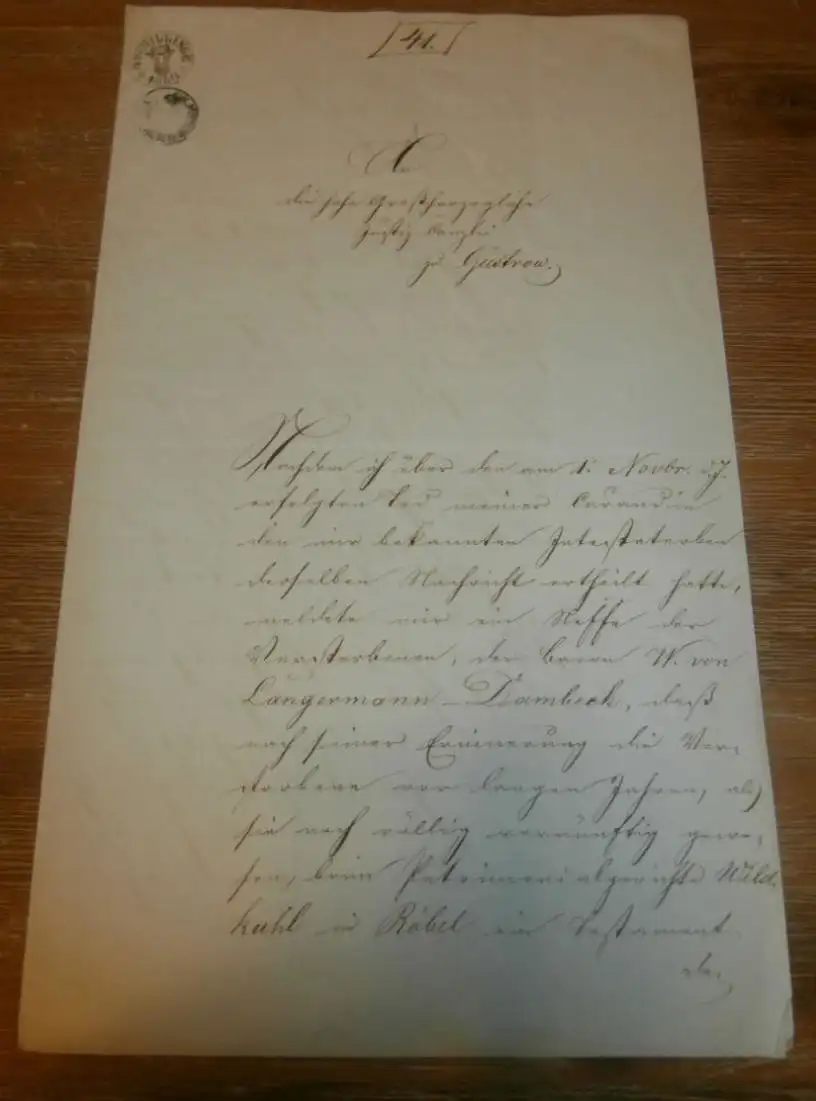 [41.]
An
die hohe Großherzogliche
Justiz Canzlei
zu Güstrow.
Nachdem ich über den am 1. Novbr. d. J.
erfolgten Tod meiner Curandin
den mir bekannten Intestaterben
derselben Nachricht ertheilt hatte,
meldete mir ein Neffe der
Verstorbenen, der Baron W. von
Langermann-Dambeck, daß
nach seiner Erinnerung die Ver-
storbene vor langen Jahren, als
sie noch völlig vernünftig gewe-
sen, beim Patrimonialgerichte Wild-
kuhl in Röbel ein Testament
de-